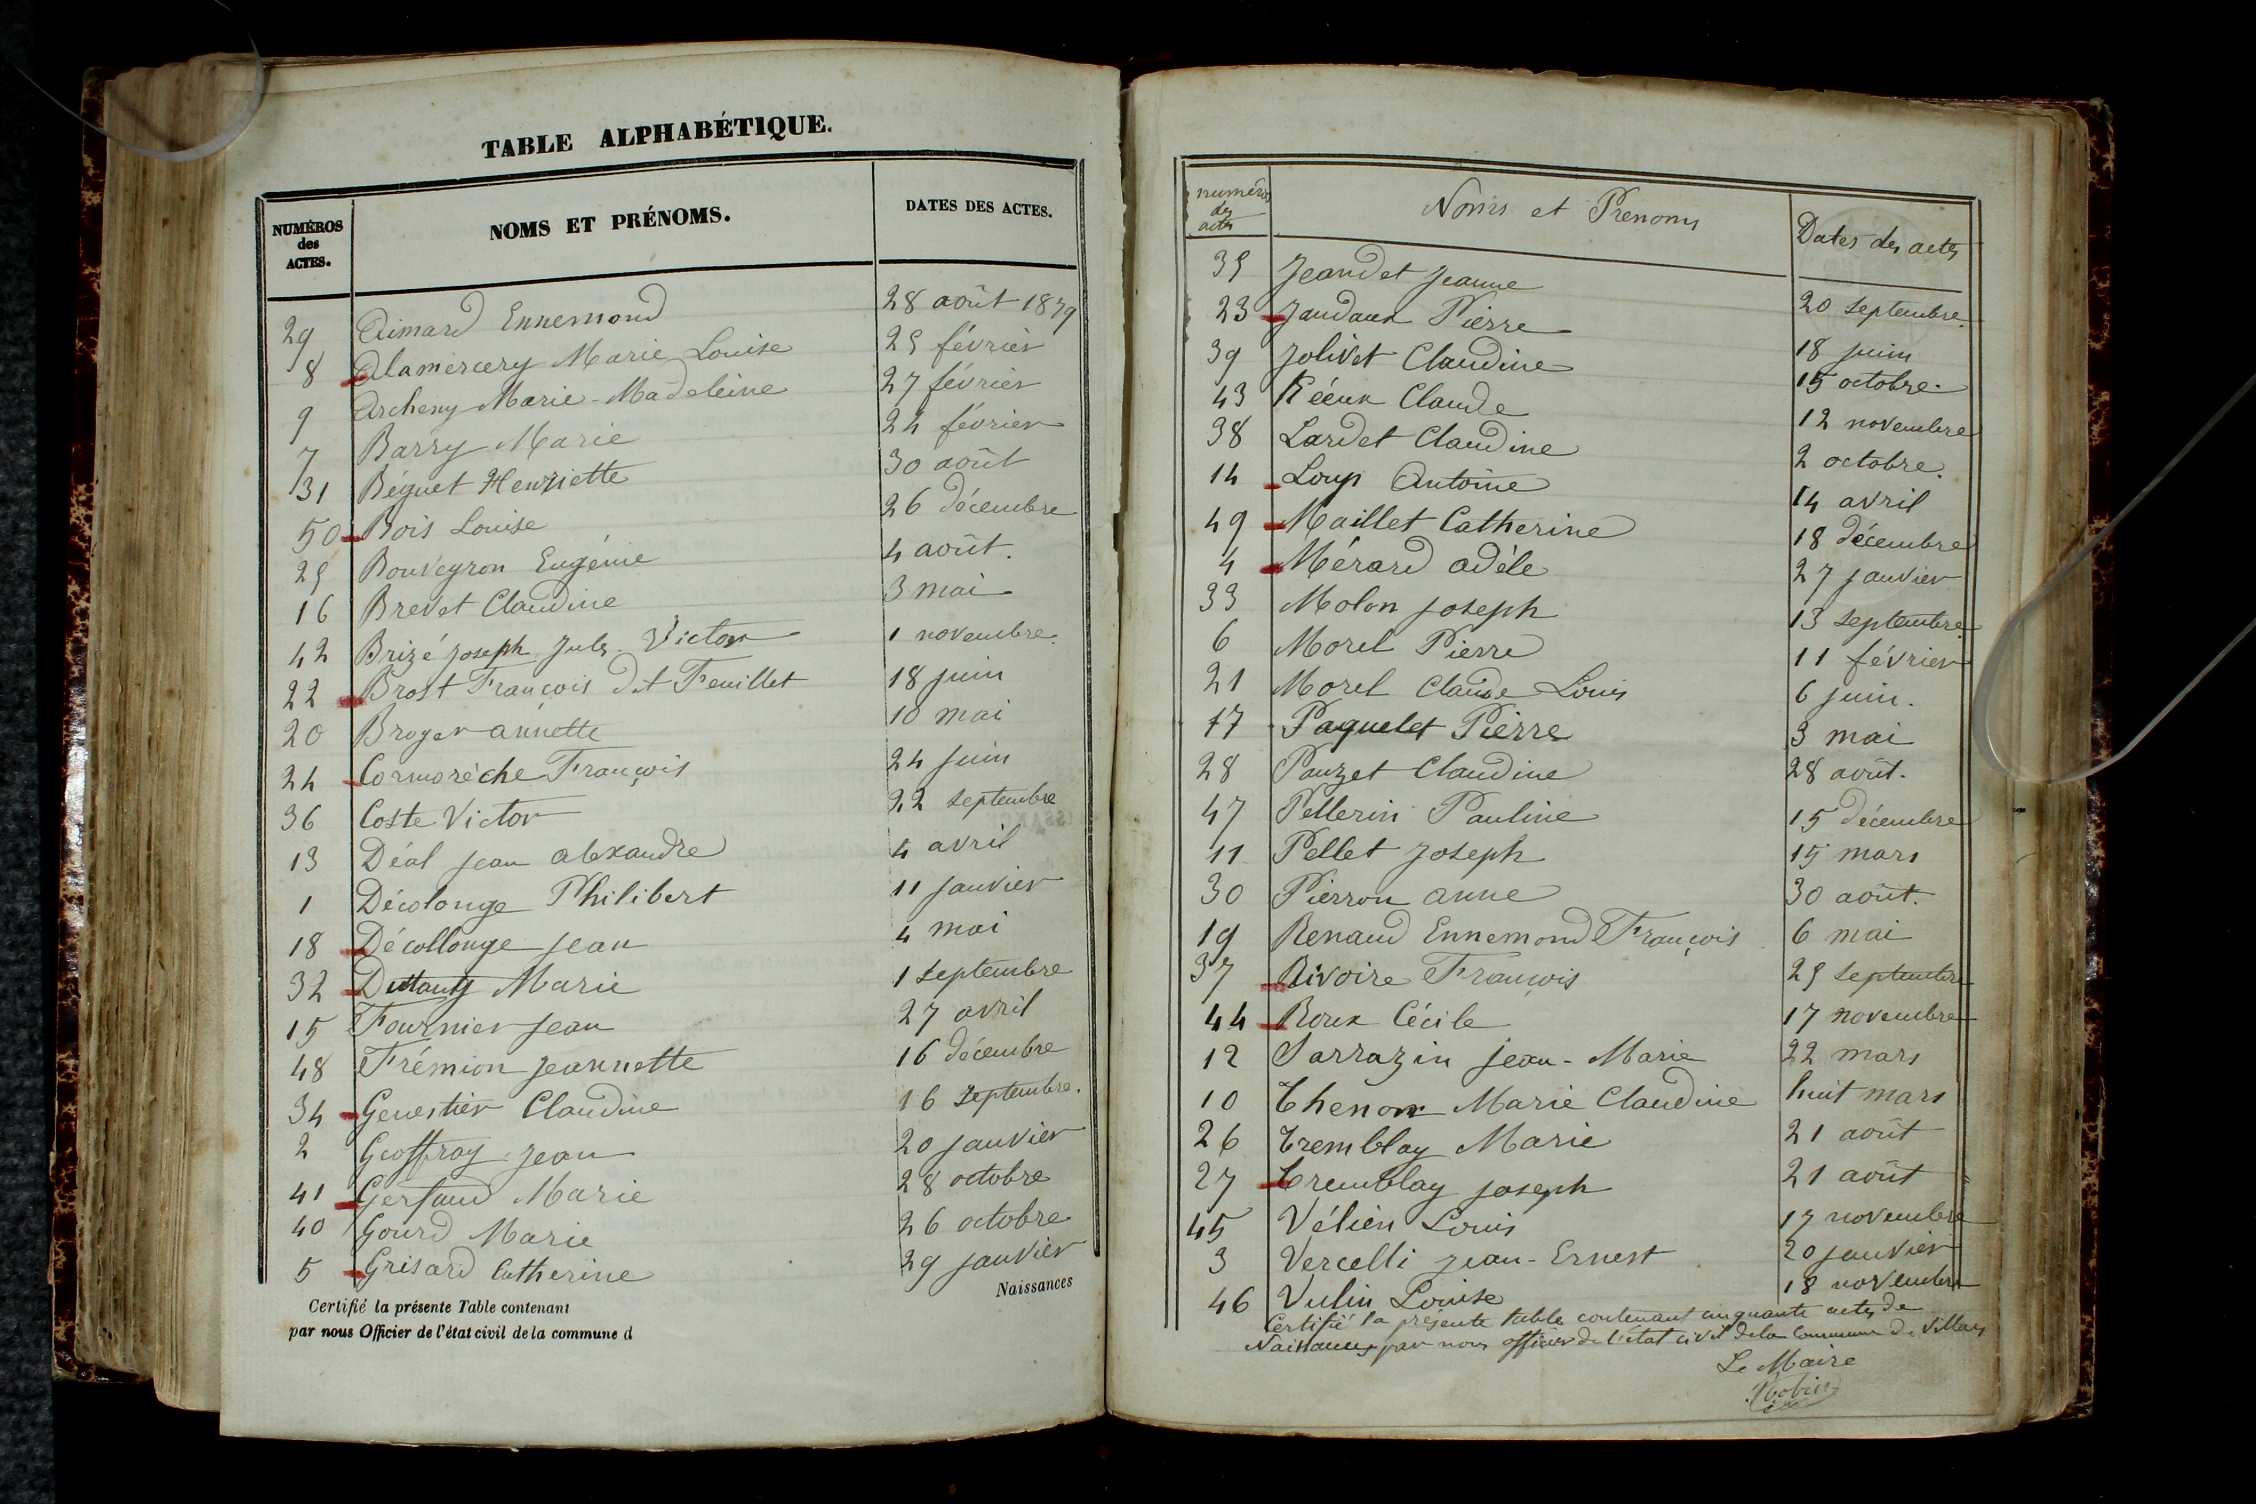 TABLE ALPHABÉTIQUE.
NUMÉROS des ACTES. NOMS ET PRÉNOMS. DATES DES ACTES.
29 Aimard Ennemond 28 août 1879
8 Alamercery Marie Louise 25 février
9 Archeny Marie-Madeleine 27 février
7 Barry Marie 24 février
31 Béguet Henriette 30 août
50 Bois Louise 26 décembre
25 Bouveyron Eugénie 4 août.
16 Brevet Claudine 3 mai
42 Brizé Joseph Jules Victor 1 novembre.
22 Brost François dit Feuillet 18 juin
20 Broyer annette 10 mai
24 Cormorèche François 24 juin
36 Coste Victor 22 septembre
13 Déal jean alexandre 4 avril
1 Décolonge Philibert 11 janvier
18 Décollonge jean 4 mai
32 Marie 1 septembre
15 Fournier jean 27 avril
48 Frémion jeannette 16 décembre
34 Genestier Claudine 16 septembre.
2 Geoffray jean 20 janvier
41 Gerfaud Marie 28 octobre
40 Gourd Marie 26 octobre
5 Grisard Catherine 29 janvier
Naissances
Certifié la présente Table contenant
par nous Officier de l'état civil de la commune d
numéros des actes Noms et Prenoms Dates des actes
35 Jeandet Jeanne 20 septembre.
23 Jandaux Pierre 18 juin
39 Jolivet Claudine 15 octobre.
43 Claude 12 novembre
38 Lardet Claudine 2 octobre.
14 Loup Antoine 14 avril
49 Maillet Catherine 18 décembre
4 Mérard adèle 27 janvier
33 Molon joseph 13 septembre.
6 Morel Pierre 11 février
21 Morel Claude Louis 6 juin.
17 Paquelet Pierre 3 mai
28 Pauzet Claudine 28 août.
47 Pellerin Pauline 15 décembre
11 Pellet joseph 15 mars
30 Pierron anne 30 août.
19 Renaud Ennemond François 6 mai
37 Rivoire François 25 septembre
44 Roux Cécile 17 novembre
12 Sarrazin jean-Marie 22 mars
10 Thenon Marie Claudine huit mars
26 Tremblay Marie 21 août
27 Tremblay joseph 21 août
45 Vélien Louis 17 novembre
3 Vercelli jean-Ernest 20 janvier
46 Vulin Louise 18 novembre
Certifié la présente table contenant cinquante actes de
Naissances par nous officier de l'état civil de la commune de Villars
Le Maire